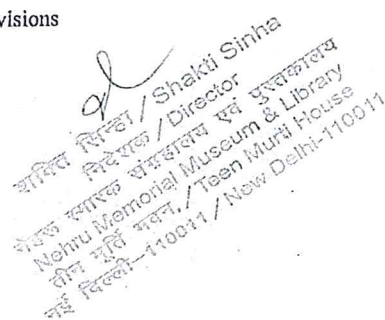 visions
शक्ति सिन्हा / Shakti Sinha
निदेशक / Director
नेहरू स्मारक संग्रहालय एवं पुस्तकालय
Nehru Memorial Museum & Library
तीन मूर्ति भवन, / Teen Murti House
नई दिल्ली-110011 / New Delhi-110011